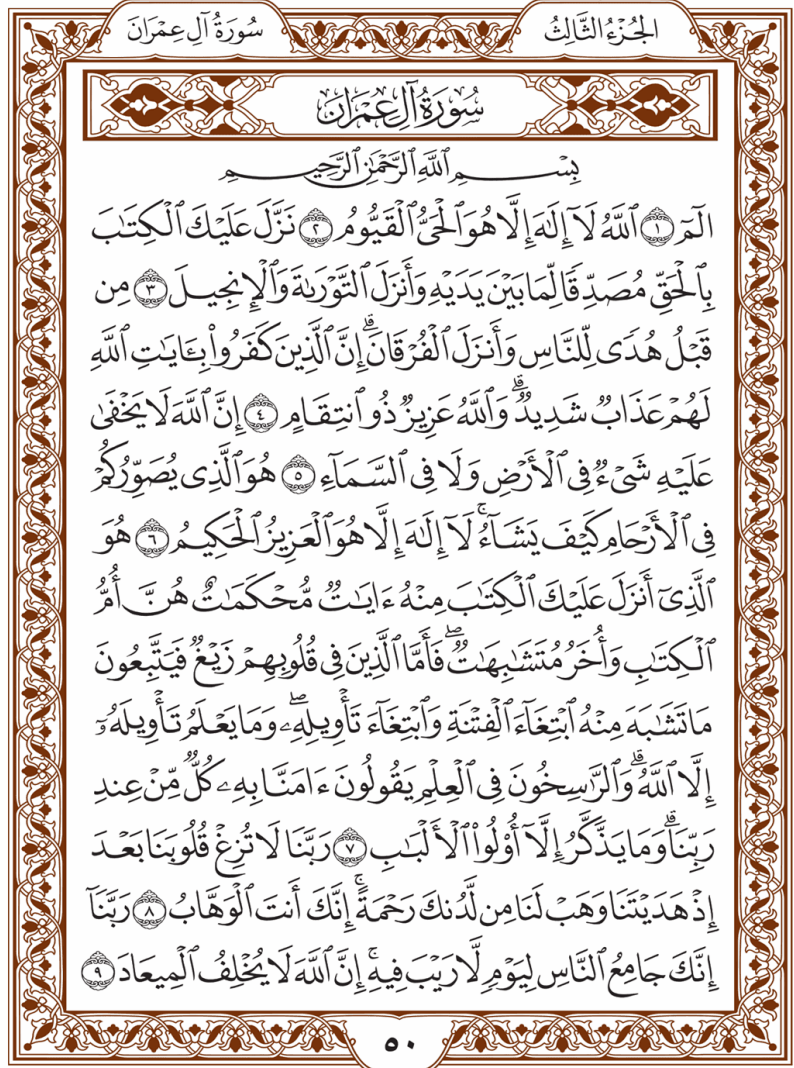 الجُزْءُ الثَّالِثُ
سُورَةُ آلِ عِمْرَانَ
سُورَةُ آلِ عِمْرَانَ
بِسْمِ ٱللَّهِ ٱلرَّحْمَٰنِ ٱلرَّحِيمِ
الٓمٓ ١ ٱللَّهُ لَآ إِلَٰهَ إِلَّا هُوَ ٱلْحَىُّ ٱلْقَيُّومُ ٢ نَزَّلَ عَلَيْكَ ٱلْكِتَٰبَ
بِٱلْحَقِّ مُصَدِّقًا لِّمَا بَيْنَ يَدَيْهِ وَأَنزَلَ ٱلتَّوْرَىٰةَ وَٱلْإِنجِيلَ ٣ مِن
قَبْلُ هُدًى لِّلنَّاسِ وَأَنزَلَ ٱلْفُرْقَانَ ۗ إِنَّ ٱلَّذِينَ كَفَرُوا۟ بِـَٔايَٰتِ ٱللَّهِ
لَهُمْ عَذَابٌ شَدِيدٌ ۗ وَٱللَّهُ عَزِيزٌ ذُو ٱنتِقَامٍ ٤ إِنَّ ٱللَّهَ لَا يَخْفَىٰ
عَلَيْهِ شَىْءٌ فِى ٱلْأَرْضِ وَلَا فِى ٱلسَّمَآءِ ٥ هُوَ ٱلَّذِى يُصَوِّرُكُمْ
فِى ٱلْأَرْحَامِ كَيْفَ يَشَآءُ ۚ لَآ إِلَٰهَ إِلَّا هُوَ ٱلْعَزِيزُ ٱلْحَكِيمُ ٦ هُوَ
ٱلَّذِىٓ أَنزَلَ عَلَيْكَ ٱلْكِتَٰبَ مِنْهُ ءَايَٰتٌ مُّحْكَمَٰتٌ هُنَّ أُمُّ
ٱلْكِتَٰبِ وَأُخَرُ مُتَشَٰبِهَٰتٌ ۖ فَأَمَّا ٱلَّذِينَ فِى قُلُوبِهِمْ زَيْغٌ فَيَتَّبِعُونَ
مَا تَشَٰبَهَ مِنْهُ ٱبْتِغَآءَ ٱلْفِتْنَةِ وَٱبْتِغَآءَ تَأْوِيلِهِۦ ۖ وَمَا يَعْلَمُ تَأْوِيلَهُۥٓ
إِلَّا ٱللَّهُ ۗ وَٱلرَّٰسِخُونَ فِى ٱلْعِلْمِ يَقُولُونَ ءَامَنَّا بِهِۦ كُلٌّ مِّنْ عِندِ
رَبِّنَا ۗ وَمَا يَذَّكَّرُ إِلَّآ أُو۟لُوا۟ ٱلْأَلْبَٰبِ ٧ رَبَّنَا لَا تُزِغْ قُلُوبَنَا بَعْدَ
إِذْ هَدَيْتَنَا وَهَبْ لَنَا مِن لَّدُنكَ رَحْمَةً ۚ إِنَّكَ أَنتَ ٱلْوَهَّابُ ٨ رَبَّنَآ
إِنَّكَ جَامِعُ ٱلنَّاسِ لِيَوْمٍ لَّا رَيْبَ فِيهِ ۚ إِنَّ ٱللَّهَ لَا يُخْلِفُ ٱلْمِيعَادَ ٩
٥٠